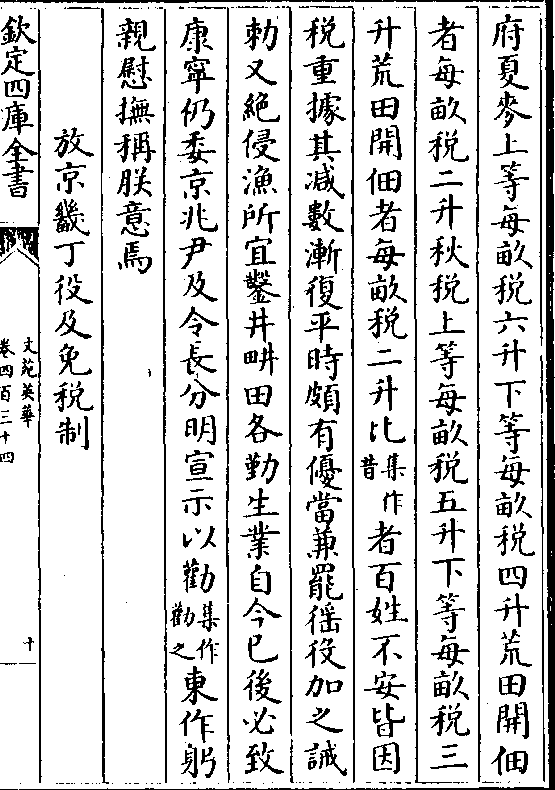 府夏麥上等每畝税六升下等每畝税四升荒田開佃
者每畝税二升秋税上等每畝税五升下等每畝税三
升荒田開佃者每畝税二升比集作昔者百姓不安皆因
税重據其減數漸復平時頗有優當兼罷徭役加之誡
勅又絶侵漁所宜鑿井畊田各勤生業自今已後必致
康寧仍委京兆尹及令長分明宣示以勸集作勸之東作躬
親慰撫稱朕意焉
放京畿丁役及免税制
欽定四庫全書
文苑英華
卷四百三十四
十